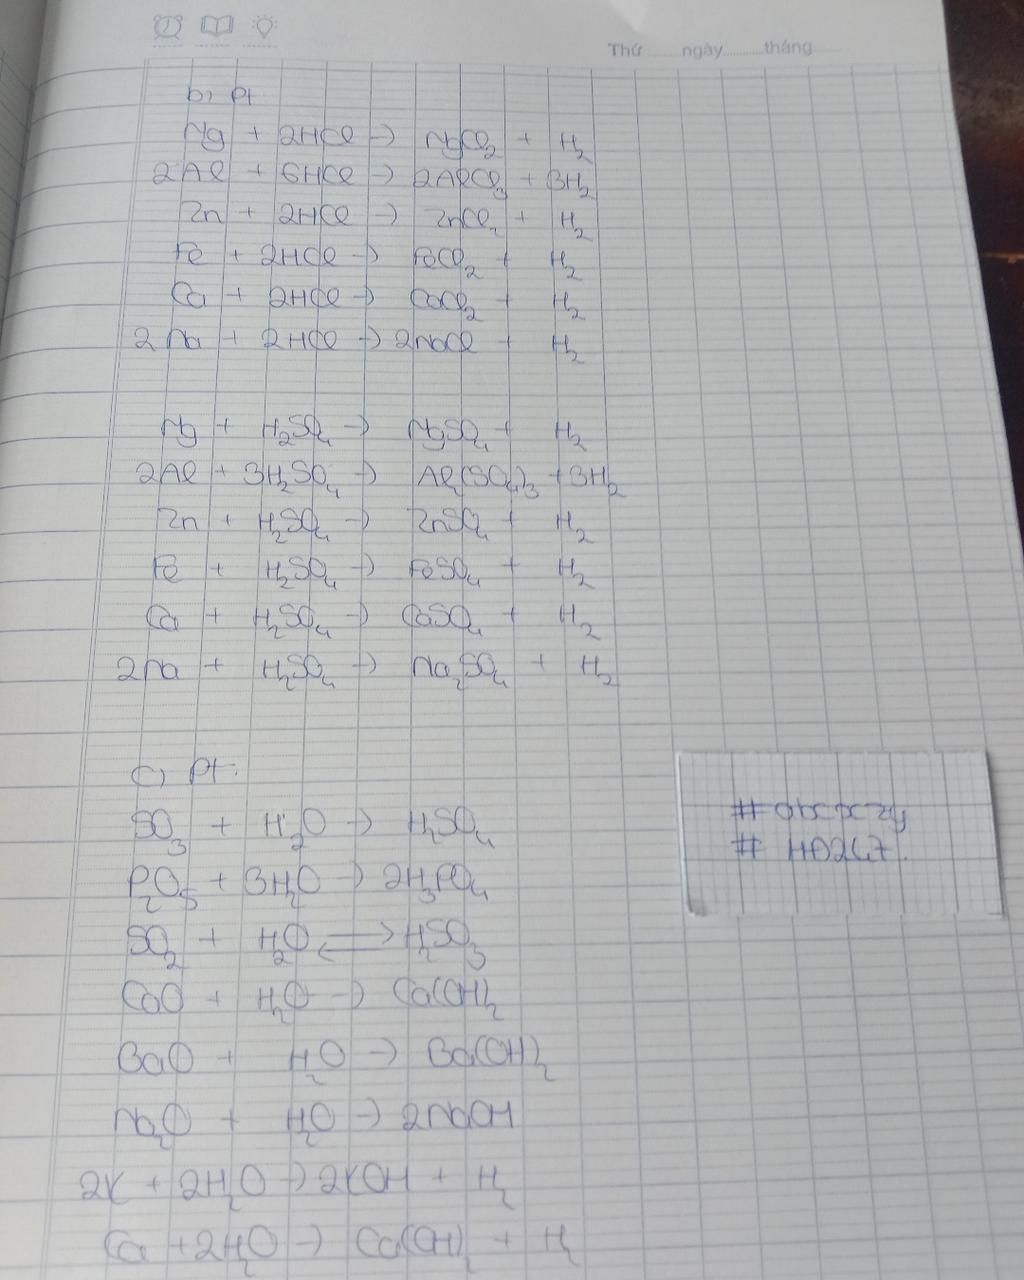 Thứ ngày tháng
b, Pt
Mg + 2HCl → MgCl₂ + H₂
2Al + 6HCl → 2AlCl₃ + 3H₂
Zn + 2HCl → ZnCl₂ + H₂
Fe + 2HCl → FeCl₂ + H₂
Ca + 2HCl → CaCl₂ + H₂
2Na + 2HCl → 2NaCl + H₂
Mg + H₂SO₄ → MgSO₄ + H₂
2Al + 3H₂SO₄ → Al₂(SO₄)₃ + 3H₂
Zn + H₂SO₄ → ZnSO₄ + H₂
Fe + H₂SO₄ → FeSO₄ + H₂
Ca + H₂SO₄ → CaSO₄ + H₂
2Na + H₂SO₄ → Na₂SO₄ + H₂
c, Pt:
SO₃ + H₂O → H₂SO₄
P₂O₅ + 3H₂O → 2H₃PO₄
SO₂ + H₂O ⇌ H₂SO₃
CaO + H₂O → Ca(OH)₂
BaO + H₂O → Ba(OH)₂
Na₂O + H₂O → 2NaOH
2K + 2H₂O → 2KOH + H₂
Ca + 2H₂O → Ca(OH)₂ + H₂
# abcxzy
# HD247.